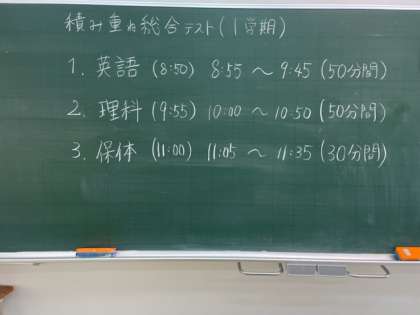 積み重ね総合テスト(1学期)
1. 英語 (8:50) 8:55 〜 9:45 (50分間)
2. 理科 (9:55) 10:00 〜 10:50 (50分間)
3. 保体 (11:00) 11:05 〜 11:35 (30分間)